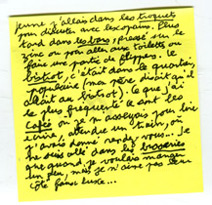 jeune j'allais dans les troquets
pour discuter avec les copains. Plus
tard dans les bars, pressé sur le
zinc ou pour aller aux toilettes ou
faire une partie de flipper. Le
bistrot, c'était dans le quartier,
populaire (mon père disait qu'il
allait au bistrot). Ce que j'ai
le plus fréquenté ce sont les
Café où je m'asseyais pour lire
écrire, attendre un train, où
j'avais donné rendez-vous... Je
ne suis allé dans les brasseries
que quand je voulais manger
un peu, mais je n'aime pas leur
côté faux luxe...